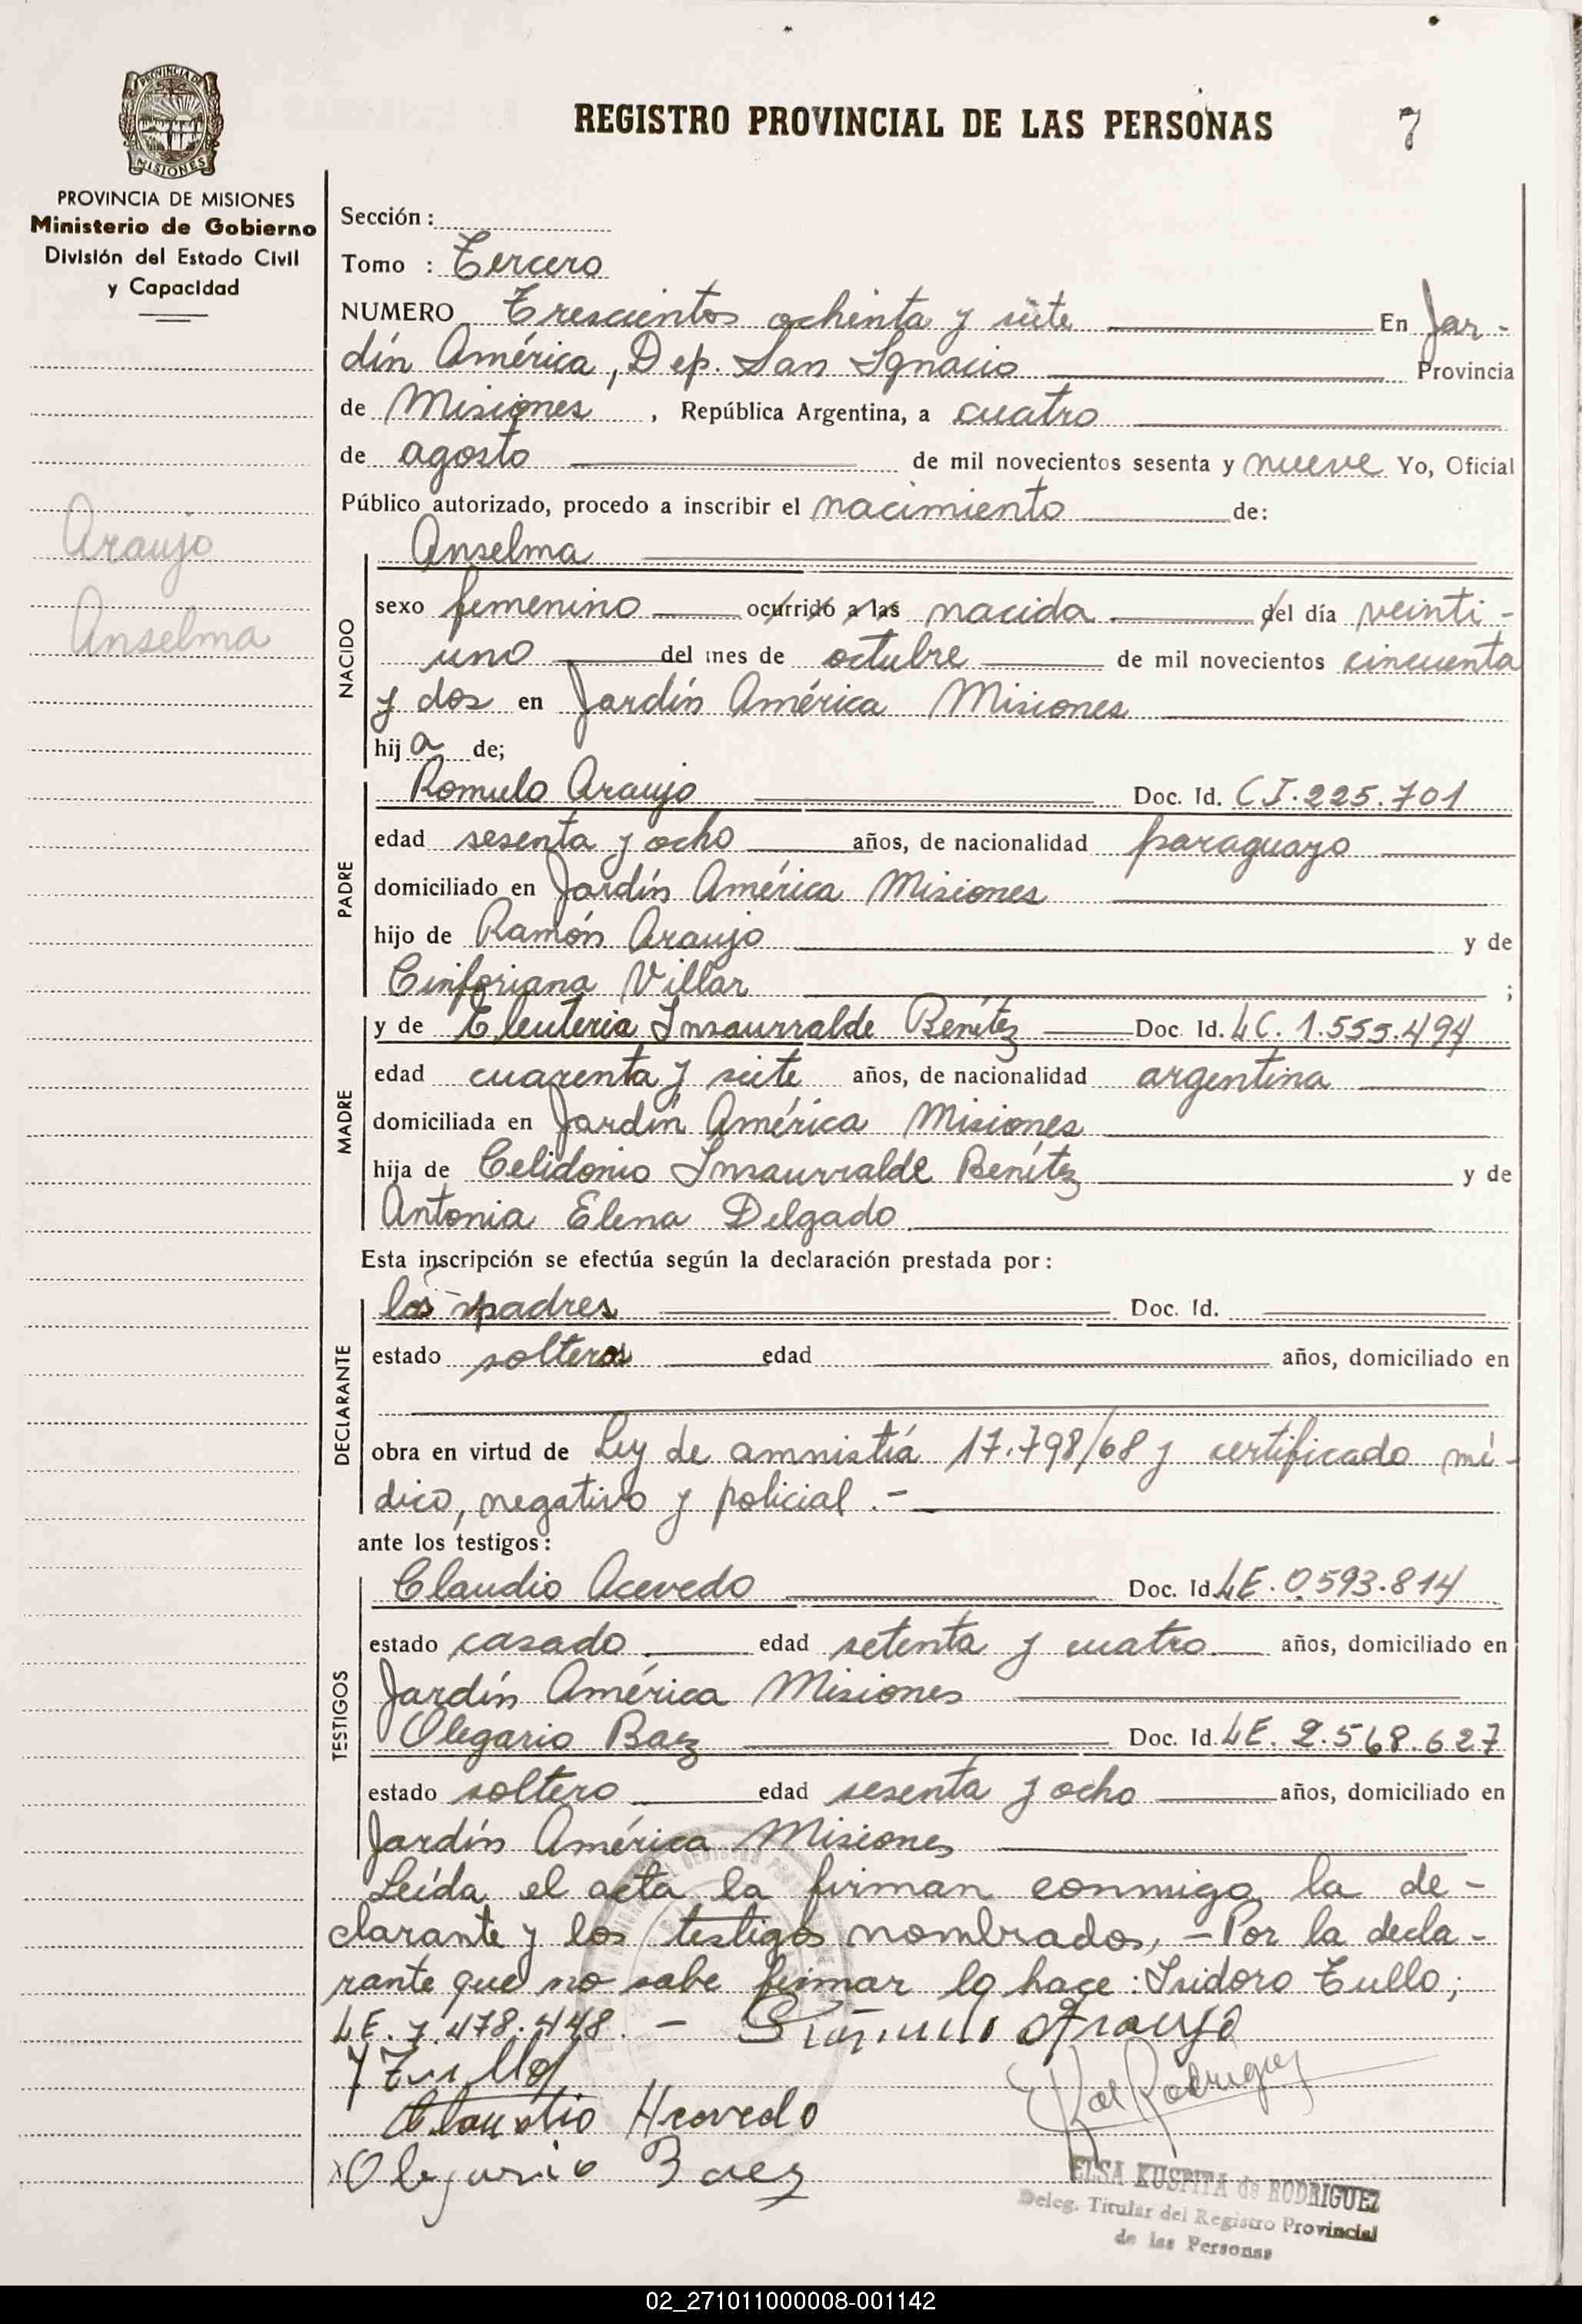 REGISTRO PROVINCIAL DE LAS PERSONAS
7
PROVINCIA DE
MISIONES
PROVINCIA DE MISIONES
Ministerio de Gobierno
División del Estado Civil
y Capacidad
Araujo
Anselma
Sección :
Tomo : Tercero
NUMERO Trescientos ochenta y siete En Jar-
dín América, Dep. San Ignacio Provincia
de Misiones , República Argentina, a cuatro
de agosto de mil novecientos sesenta y nueve Yo, Oficial
Público autorizado, procedo a inscribir el nacimiento de:
Anselma
NACIDO
sexo femenino ocurrido a las nacida del día veinti-
uno del mes de octubre de mil novecientos cincuenta
y dos en Jardín América Misiones
hij a de;
PADRE
Romulo Araujo Doc. Id. CI.225.701
edad sesenta y ocho años, de nacionalidad paraguayo
domiciliado en Jardín América Misiones
hijo de Ramón Araujo y de
Cinforiana Villar ;
MADRE
y de Eleuteria Insaurralde Benítez Doc. Id. LC. 1.555.494
edad cuarenta y siete años, de nacionalidad argentina
domiciliada en Jardín América Misiones
hija de Celidonio Insaurralde Benítez y de
Antonia Elena Delgado
Esta inscripción se efectúa según la declaración prestada por :
DECLARANTE
los padres Doc. Id.
estado solteros edad años, domiciliado en
obra en virtud de Ley de amnistiá 17.798/68 y certificado mé-
dico, negativo y policial.-
ante los testigos :
TESTIGOS
Claudio Acevedo Doc. Id. LE. 0.593.814
estado casado edad setenta y cuatro años, domiciliado en
Jardín América Misiones
Olegario Baez Doc. Id. LE. 2.568.627
estado soltero edad sesenta y ocho años, domiciliado en
Jardín América Misiones
Leída el acta la firman conmigo la de-
clarante y los testigos nombrados, - Por la decla-
rante que no sabe firmar lo hace: Isidoro Tullo;
LE. 7.478.448. - Araujo
Claudio Acevedo
Rodriguez
Olegario Baez
ELSA KUSPITA de RODRIGUEZ
Deleg. Titular del Registro Provincial
de las Personas
02_271011000008-001142